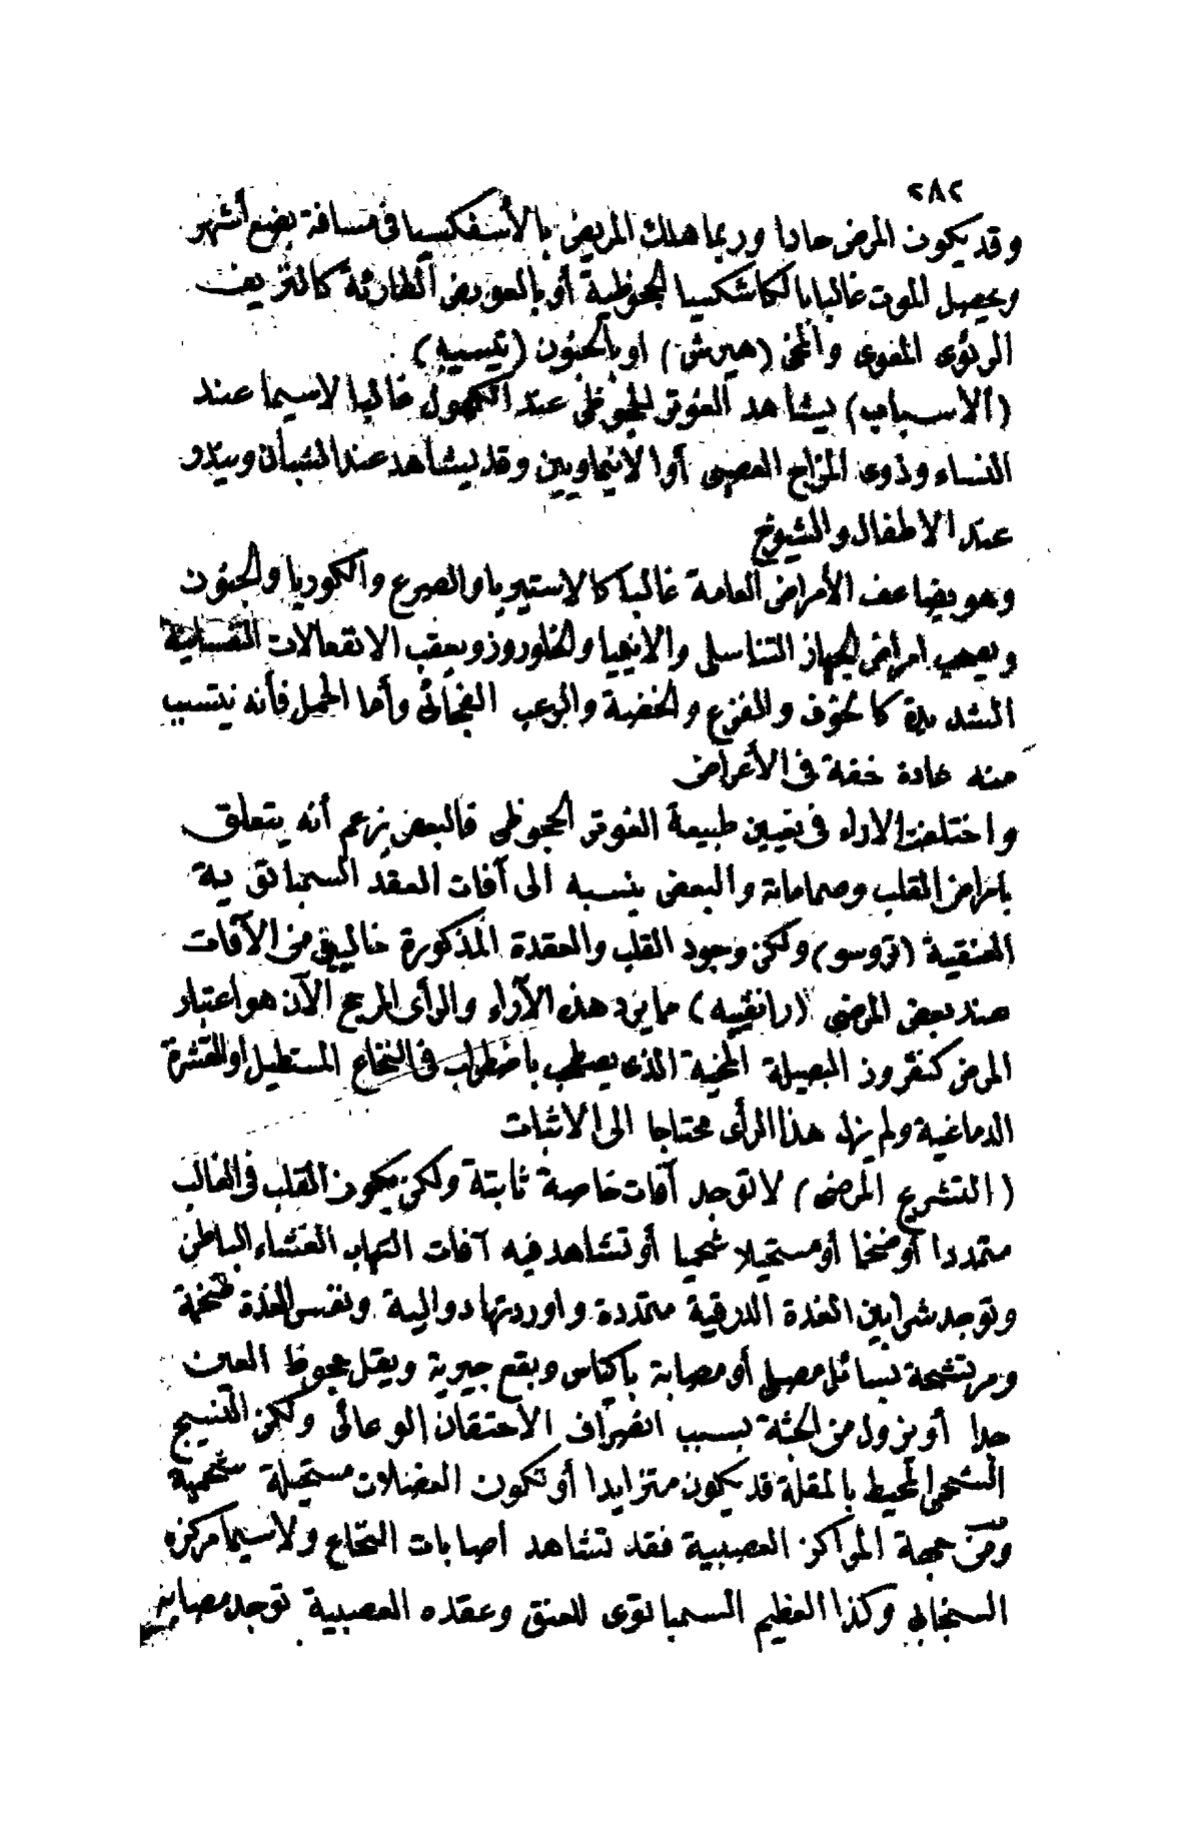 ٢٨٢
وقد يكون المرض حادا وربما هلك المريض بالأسفكسيا فى مسافة بضع أشهر
ويحصل الموت غالبا بالكاشكسيا الجحوظية أو بالعوارض الطارئة كالنزيف
الرئوى المعوى والمخى (هيرش) او بالجنون (تيسييه)
(الأسباب) يشاهد الغوتر الجحوظى عند الكهول غالبا لاسيما عند
النساء وذوى المزاج العصبى أو الانيماويين وقد يشاهد عند الشبان ويندر
عند الاطفال والشيوخ
وهو يضاعف الأمراض العامة غالبا كالاستيريا والصرع والكوريا والجنون
ويصحب امراض الجهاز التناسلى والانيميا والخلوروز ويعقب الانفعالات النفسانية
الشديدة كالخوف والفزع والخضة والرعب الفجائى وأما الحمل فأنه يتسبب
منه عادة خفة فى الأعراض
واختلفت الاراء فى تعيين طبيعة الغوتر الجحوظى فالبعض يزعم أنه يتعلق
بامراض القلب وصماماته والبعض ينسبه الى آفات العقد السمباتوية
العنقية (تروسو) ولكن وجود القلب والعقدة المذكورة خاليين من الآفات
عند بعض المرضى (رانفييه) مما يرد هذه الآراء والرأى المرجح الآن هو اعتبار
المرض كنفروز البصيلة المخية الذى يصطحب باضطراب فى النخاع المستطيل او القشرة
الدماغية ولم يزل هذا الرأى محتاجا الى الاثبات
(التشريح المرضى) لا توجد آفات خاصة ثابتة ولكن يكون القلب فى الغالب
متمددا أو ضخما أو مستحيلا شحميا أو تشاهد فيه آفات التهاب الغشاء الباطن
وتوجد شرايين الغدة الدرقية متمددة واوردتها دوالية ونفس الغدة ضخمة
ومرتشحة بسائل مصلى أو مصابة باكياس وبقع جيرية ويقل جحوظ العين
جدا أو يزول من الجثة بسبب انصراف الاحتقان الوعائى ولكن النسيج
الشحمى المحيط بالمقلة قد يكون متزايدا أو تكون العضلات مستحيلة شحمية
ومن جهة المراكز العصبية فقد تشاهد اصابات النخاع ولاسيما مركزه
السنجابى وكذا العظيم السمباتوى للعنق وعقده العصبية توجد مصابة